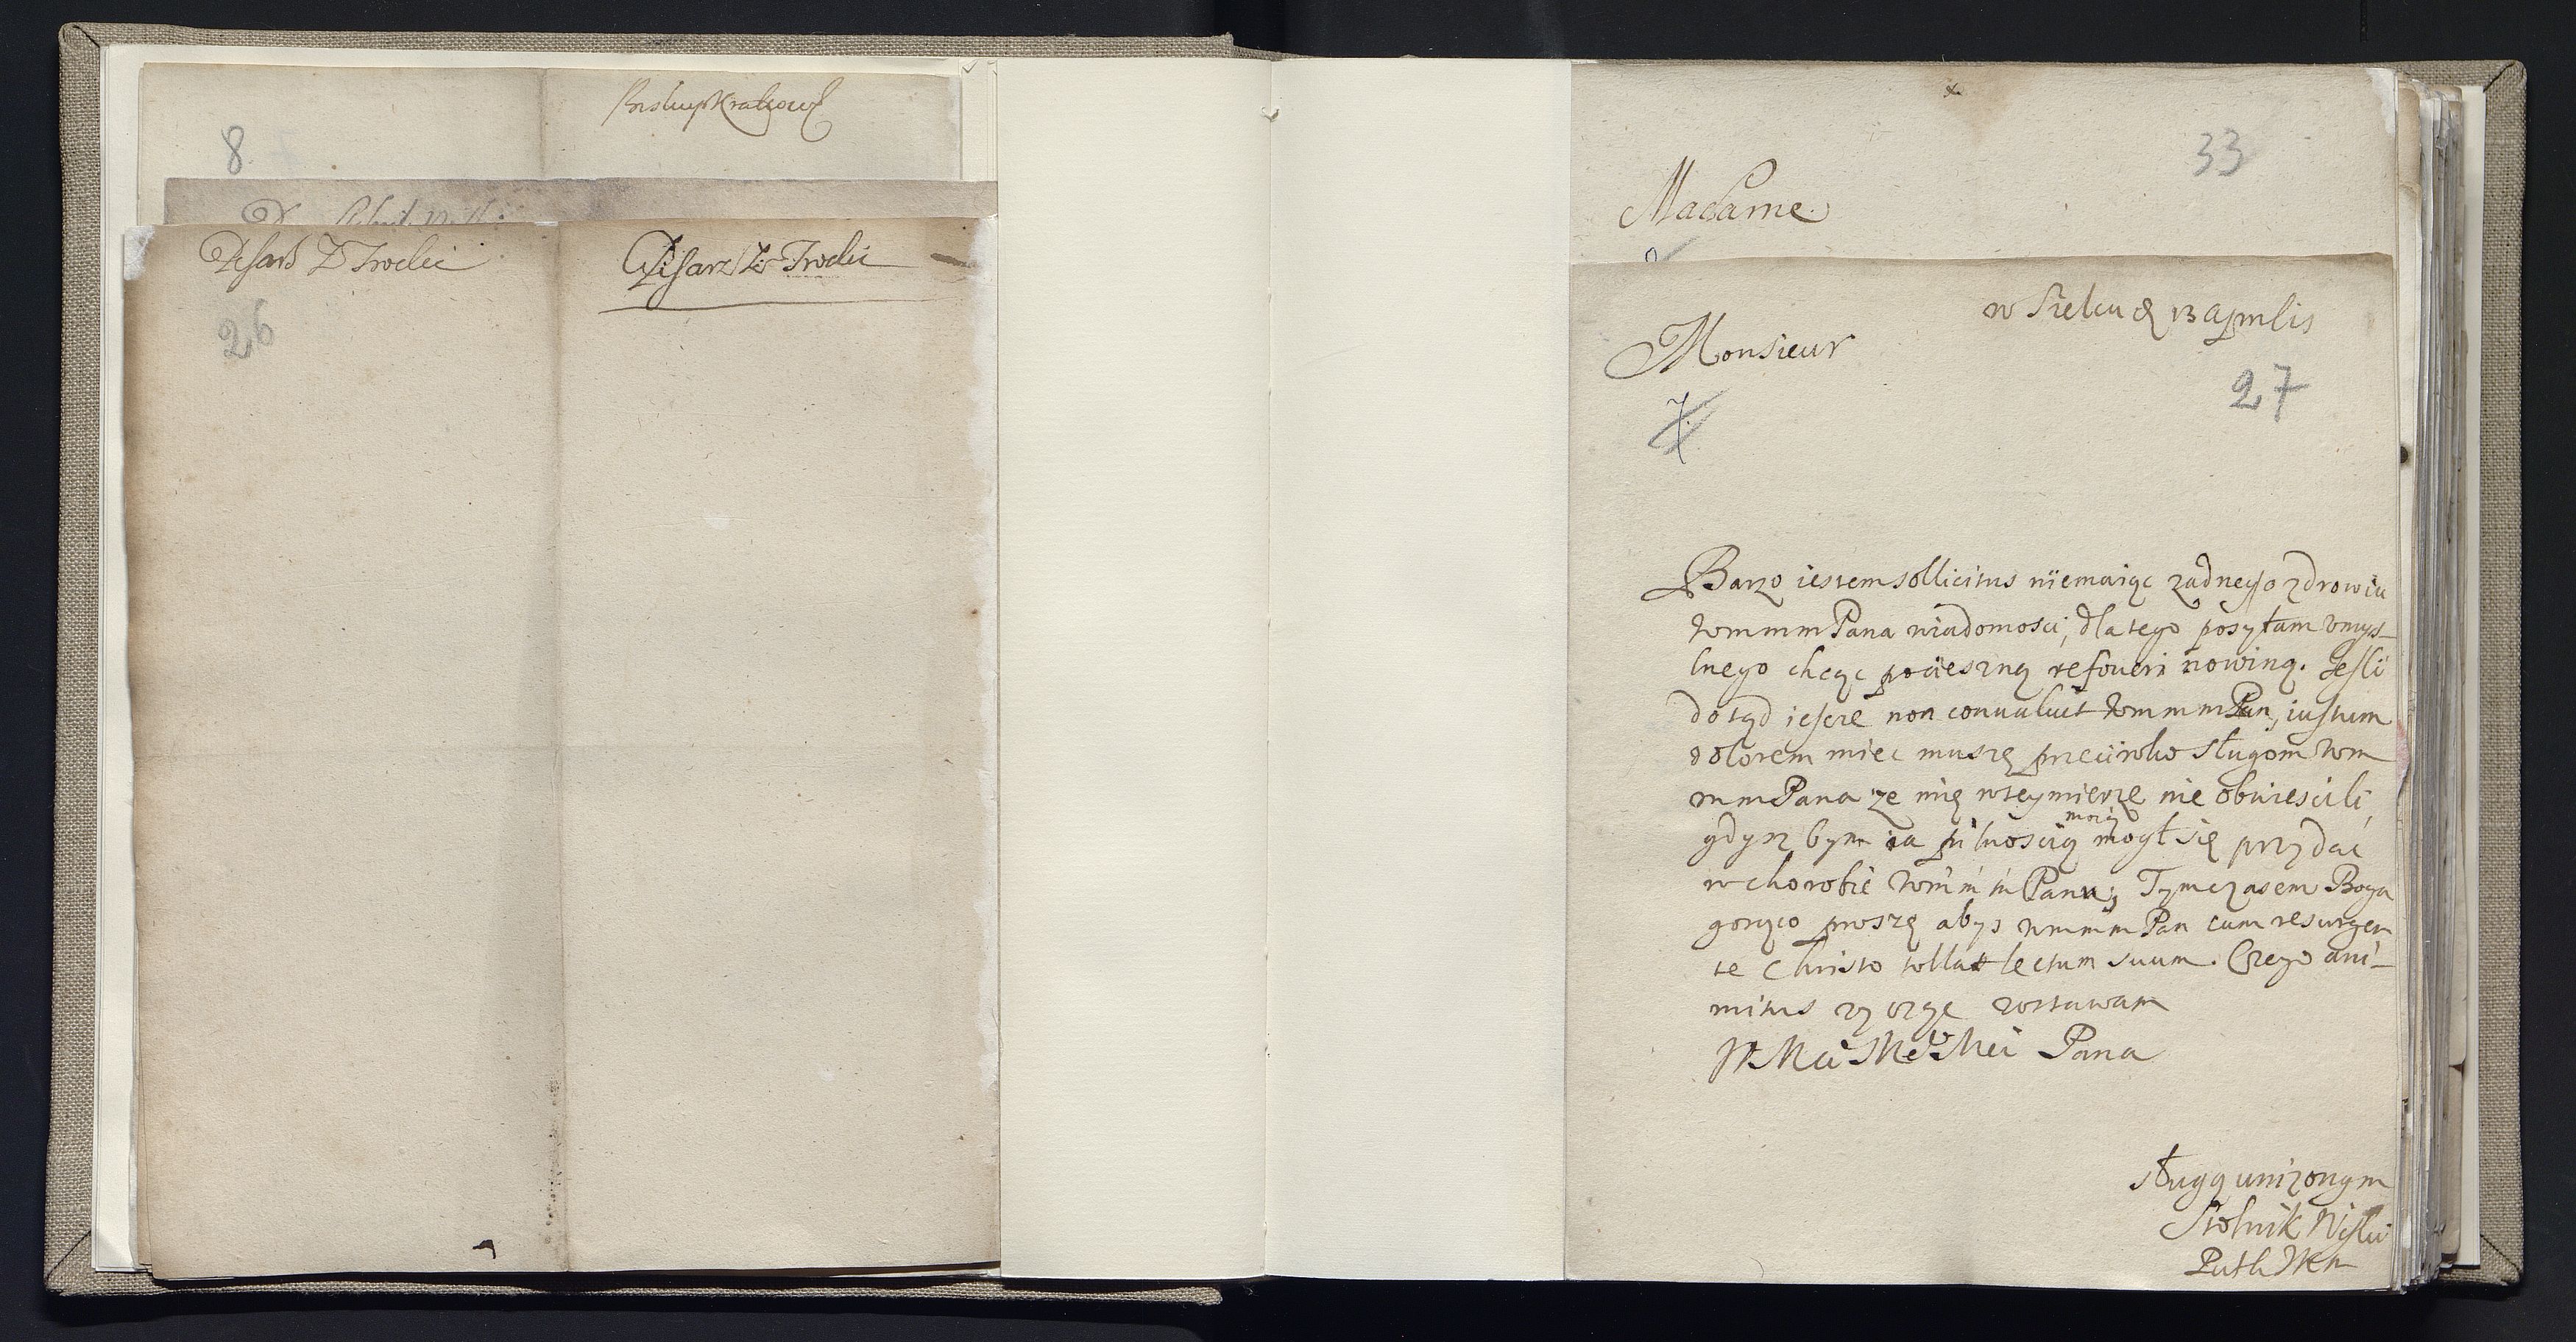 8
Pisarz
26
Pisarz
33
Madame
w Sielcu 13 aprilis
Monsieur
27
7.
Barzo iestem sollicitus niemaiąc zadnego o zdrowiu
wmmm Pana wiadomosci, dla tego posyłam vmys-
lnego chcąc pocieszną refoueri nowiną. Jesli
do tąd iescze non conualuit wmmm Pan, iustum
dolorem miec muszę przeciwko sługom wm
mm Pana ze mię wtey mierze nie obwiescili,
gdysz bym ia pilnoscią moią mogł się przydac
w chorobie wmmm Panu; Tymczasem Boga
gorąco proszę abys wmmm Pan cum resurgen
te Christo tollat lectum suum. Czego ani-
mitus zycząc zostawam
Pana
sługą unizonym
Stolnik